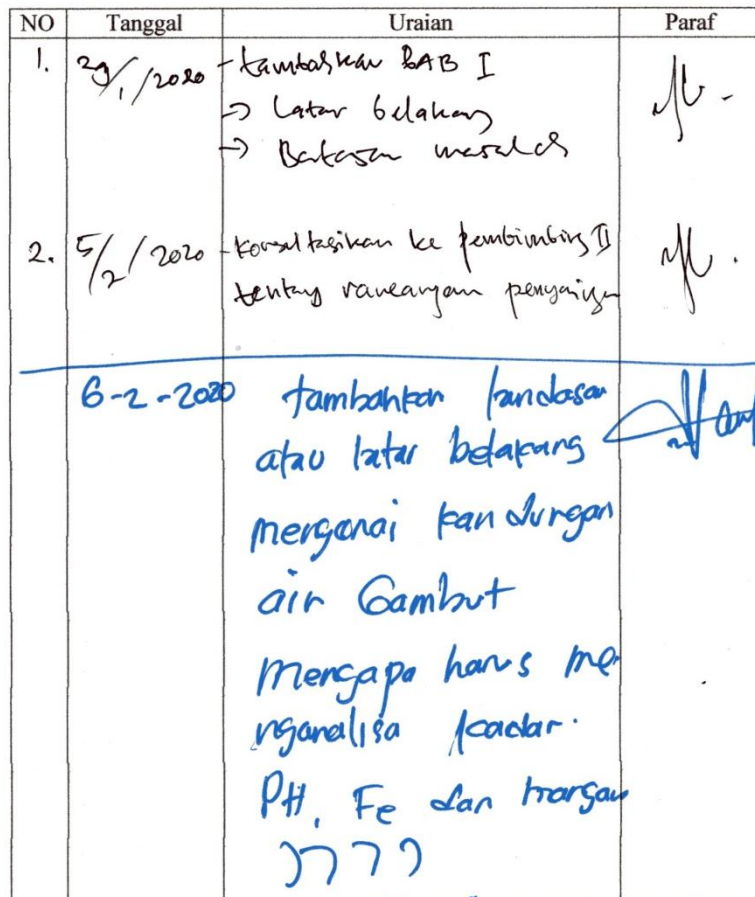 NO Tanggal Uraian Paraf
1. 29/1/2020 - tambahkan BAB I
→ Latar belakang
→ Batasan masalah
2. 5/2/2020 - Konsultasikan ke pembimbing II
tentang rancangan penyaringan
6-2-2020 tambahkan landasan
atau latar belakang
mengenai kandungan
air Gambut
Mengapa harus me
nganalisa kadar.
PH, Fe dan
????